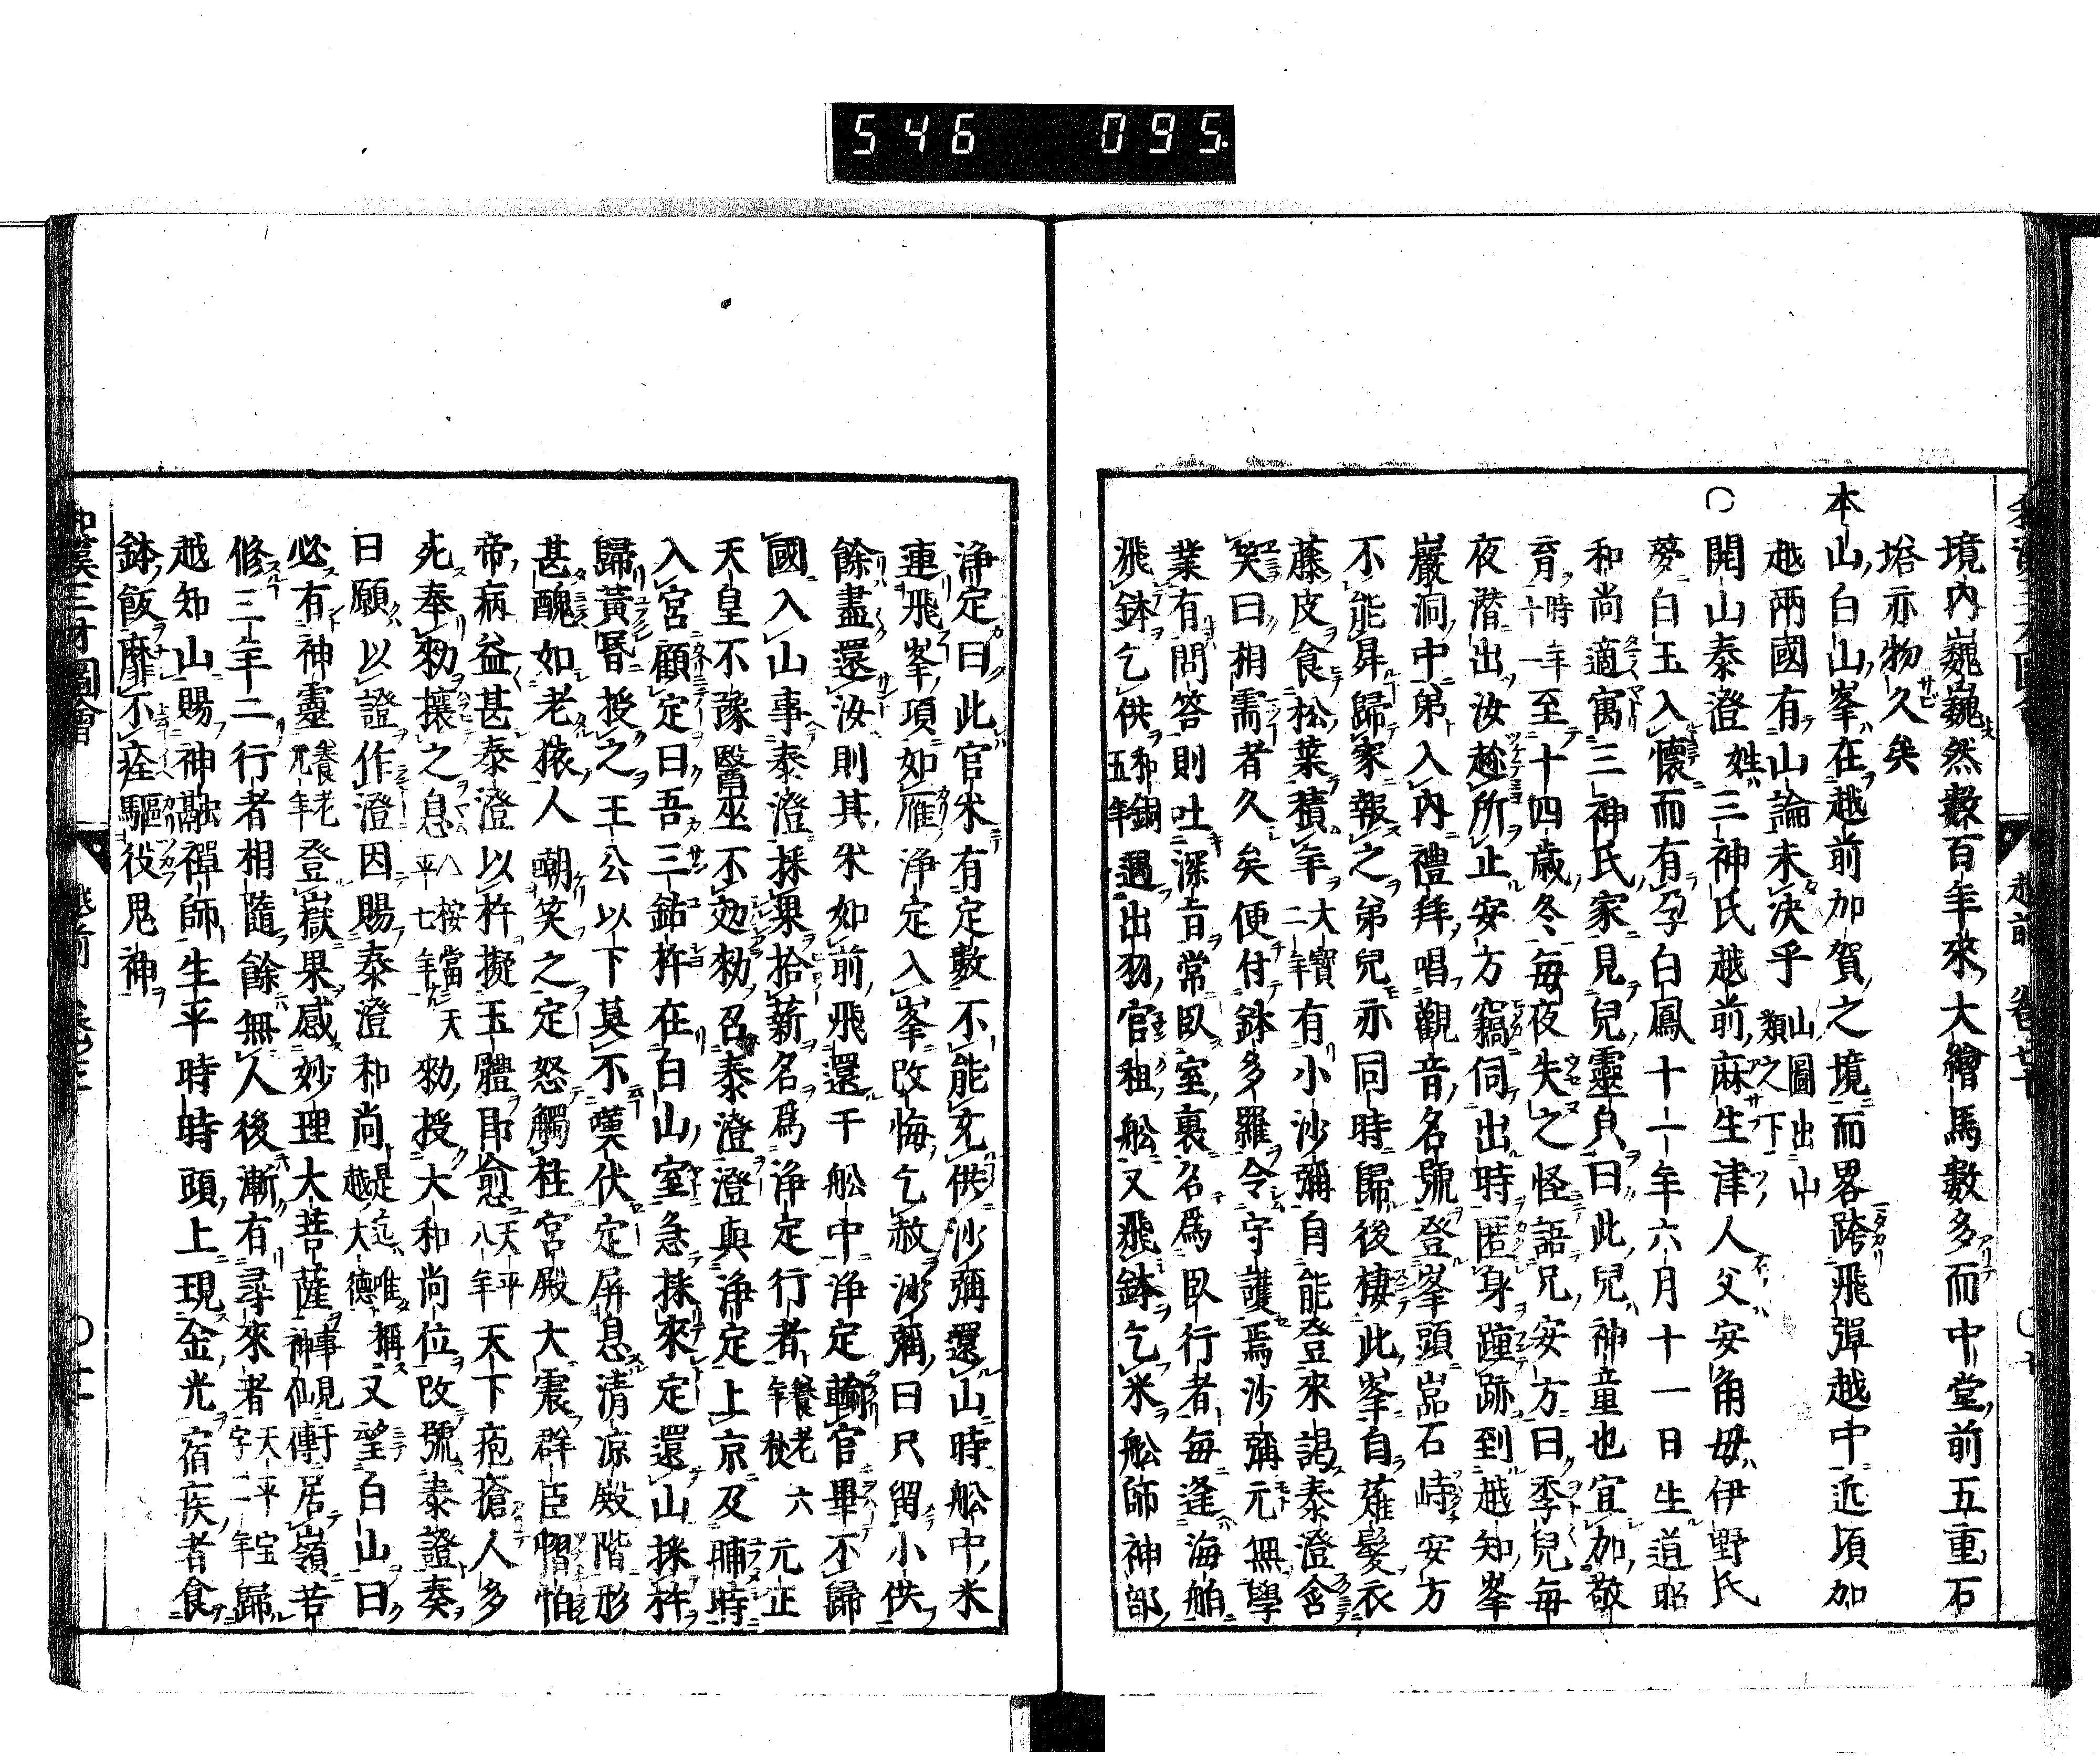 546 095
境内巍巍然數百年來大繪馬數多而中堂前五重石
塔亦物久矣
本山白山峯在越前加賀之境而畧跨飛彈越中近頃加
越兩國有山論未決乎 山圖出山類之下
○開山泰澄 姓三神氏越前麻生津人父安角毋伊野氏
夢白玉入懷而有孕白鳳十一年六月十一日生道昭
和尚適寓三神氏家見兒靈皃曰此兒神童也宜加敬
育 時十一年 至十四歳冬毎夜失之怪語兄安方曰季兒毎
夜潛出汝趂所止安方竊伺出時匿身蹱跡到越知峯
巖洞中弟入内禮拜唱觀音名號登峯頭嵓石峙安方
不能昇歸家報之弟兒亦同時歸後棲此峯自薙髮衣
藤皮食松葉積年 大寳二年 有小沙彌自能登來謁泰澄含
笑曰相需者久矣便付鉢多羅令守護焉沙彌元無學
業有問答則吐深旨常臥室裏名爲臥行者毎逢海舶
飛鉢乞供 和銅五年 遇出羽官租舩又飛鉢乞米舩師神部
浄定曰此官米有定數不能充供沙彌還山時舩中米
連飛峯項如雁浄定入峯改悔乞赦沙彌曰尺留小供
餘盡還汝則其米如前飛還干舩中浄定輸官畢不歸
國入山事泰澄採果拾薪名爲浄定行者 養老年秋 六 元正
天皇不豫醫巫不効勑召泰澄澄與浄定上京及晡時
入宮顧定曰吾三鈷杵在白山室急採來定還山採杵
歸黃昬授之王公以下莫不嘆伏定屏息清凉殿階形
甚醜如老猿人嘲笑之定怒觸柱宮殿大震群臣慴怕
帝病益甚泰澄以杵擬玉體即愈 天平八年 天下疱瘡人多
死奉勑攘之息 八 按當平七年 天 勑授大和尚位改號泰證奏
曰願以證作澄因賜泰澄和尚 是迄唯稱越大德 又望白山曰
必有神靈 養老元年 登嶽果感妙理大菩薩 事見于神仙傳 居嶺苦
修三年二行者相隨餘無人後漸有尋來者 天平宝字二年 歸
越知山賜神融禪師生平時時頭上現金光宿疾者食
鉢飯靡不痊驅役鬼神